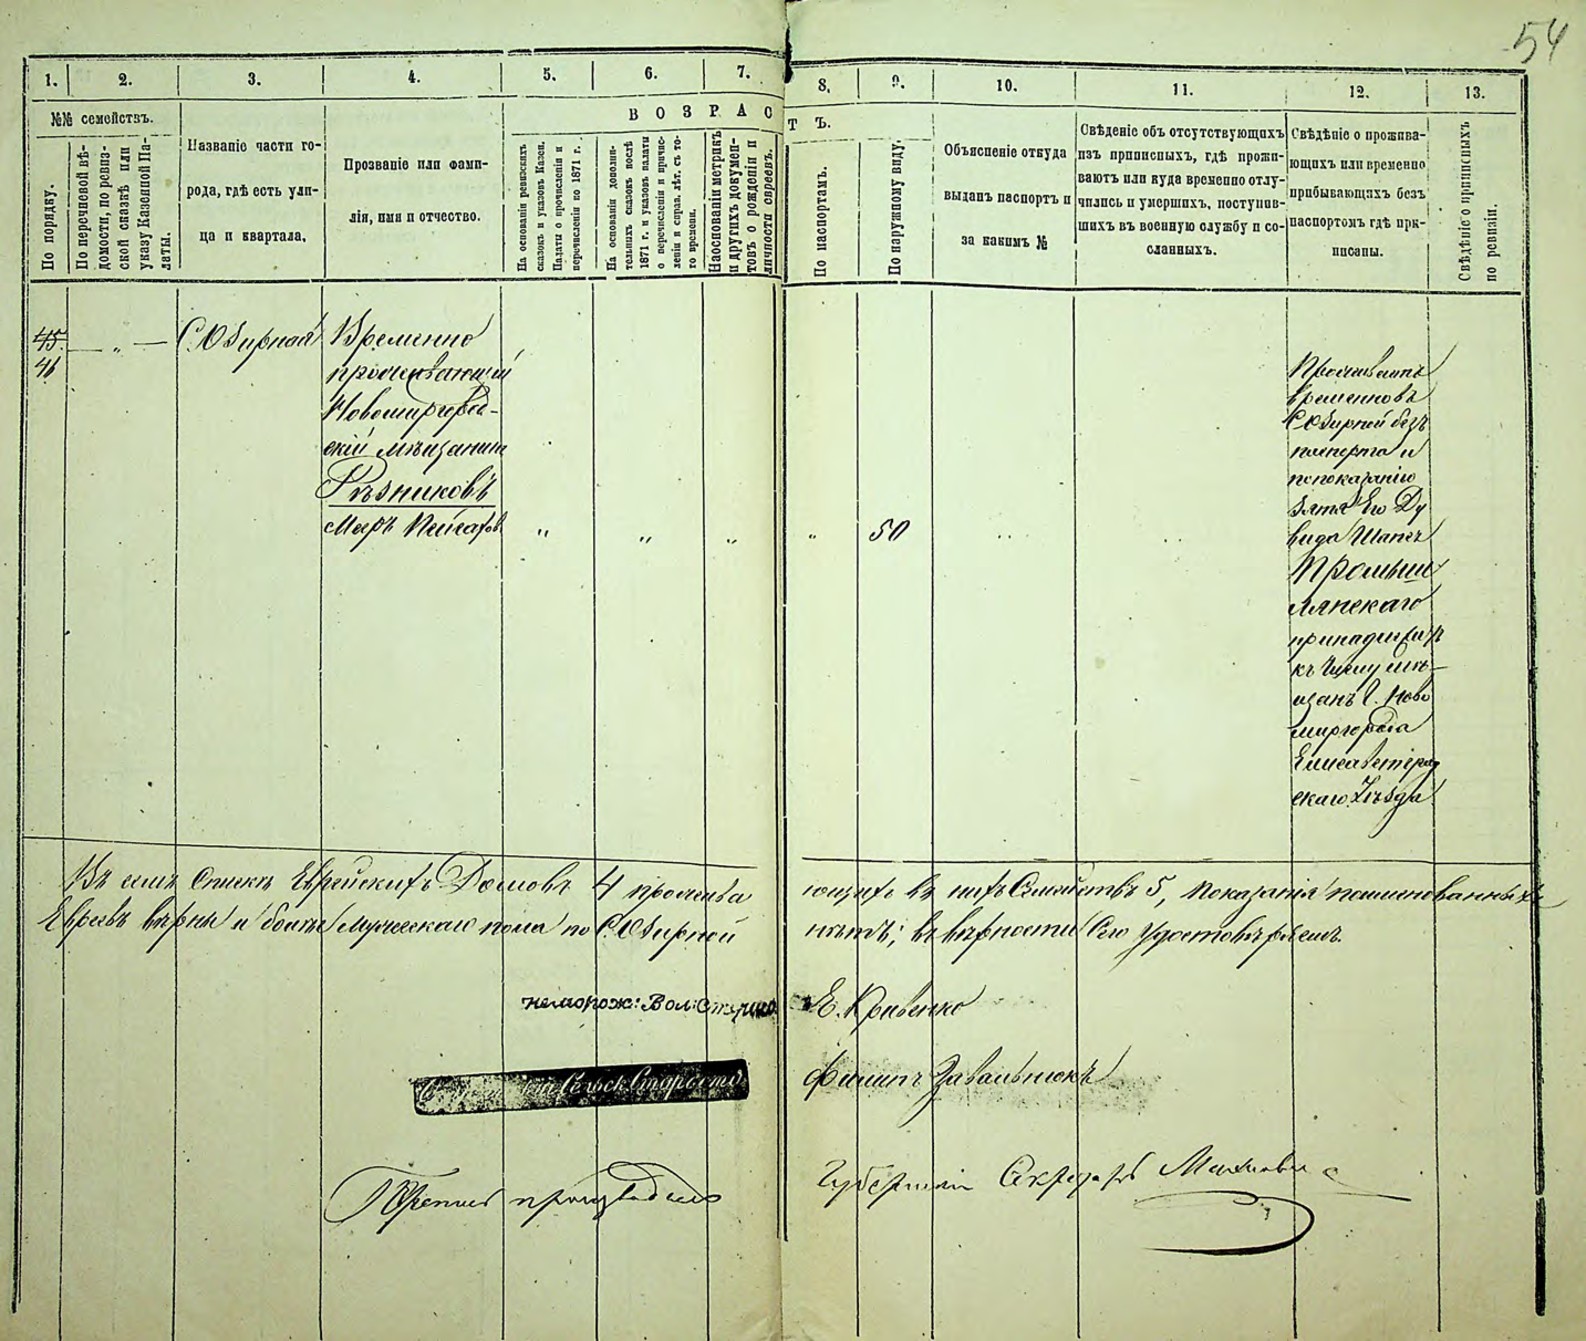 54
1. 2. 3. 4. 5. 6. 7. 8. 9. 10. 11. 12. 13.
№№ семействъ.
По порядку.
По перечневой вѣ-
домости, по ревиз-
ской сказкѣ или
указу Казенной Па-
латы.
Названіе части го-
рода, гдѣ есть ули-
ца и квартала.
Прозваніе или фами-
лія, имя и отчество.
ВОЗРАСТЪ.
На основаніи ревизскихъ
сказокъ и указовъ Казен.
Палаты о причисленіи и
перечисленіи по 1871 г.
На основаніи дополни-
тельныхъ сказокъ послѣ
1871 г. и указовъ палаты
о перечисленіи и причис-
леніи и справ. лѣт. съ то-
го времени.
Наоснованіи метрикъ
и другихъ докумен-
товъ о рожденіи и
личности евреевъ.
По паспортамъ.
По наружному виду.
Объясненіе откуда
выданъ паспортъ и
за какимъ №
Свѣденіе объ отсутствующихъ
изъ приписныхъ, гдѣ прожи-
ваютъ или куда временно отлу-
чились и умершихъ, поступив-
шихъ въ военную службу и со-
сланныхъ.
Свѣдѣніе о прожива-
ющихъ или временно
прибывающихъ безъ
паспортомъ гдѣ при-
писаны.
Свѣдѣніе о приписныхъ
по ревизіи.
45.
46
— „ —
С. Озирная
Временно
проживающій
Новомиргород-
скій мѣщанинъ
Рѣзниковъ
Меръ Пейсахов
„ „ „ „ 50 „ „
Проживаетъ
временно въ
С Озирной безъ
паспорта и
по показанію
зятя Его Ду
вида Шапсъ
Промыш
лянскаго
принадлежитъ
къ числу мѣ-
щанъ г. Ново
миргорода
Елисаветград
скаго Уѣзда
Въ семъ Спискѣ Еврейскихъ Домовъ 4 прожива ющихъ въ нихъ Семействъ 5, показанія поименованныхъ
Евреевъ вѣрны и болѣе Мужескаго пола по С. Озирной нѣтъ; въ вѣрности Сего удостовѣряемъ.
неморож: Вол: Старши Е. Кривенко
Сельск Староста Филипъ Завальнюкъ
производилъ Губернскій Секретарь